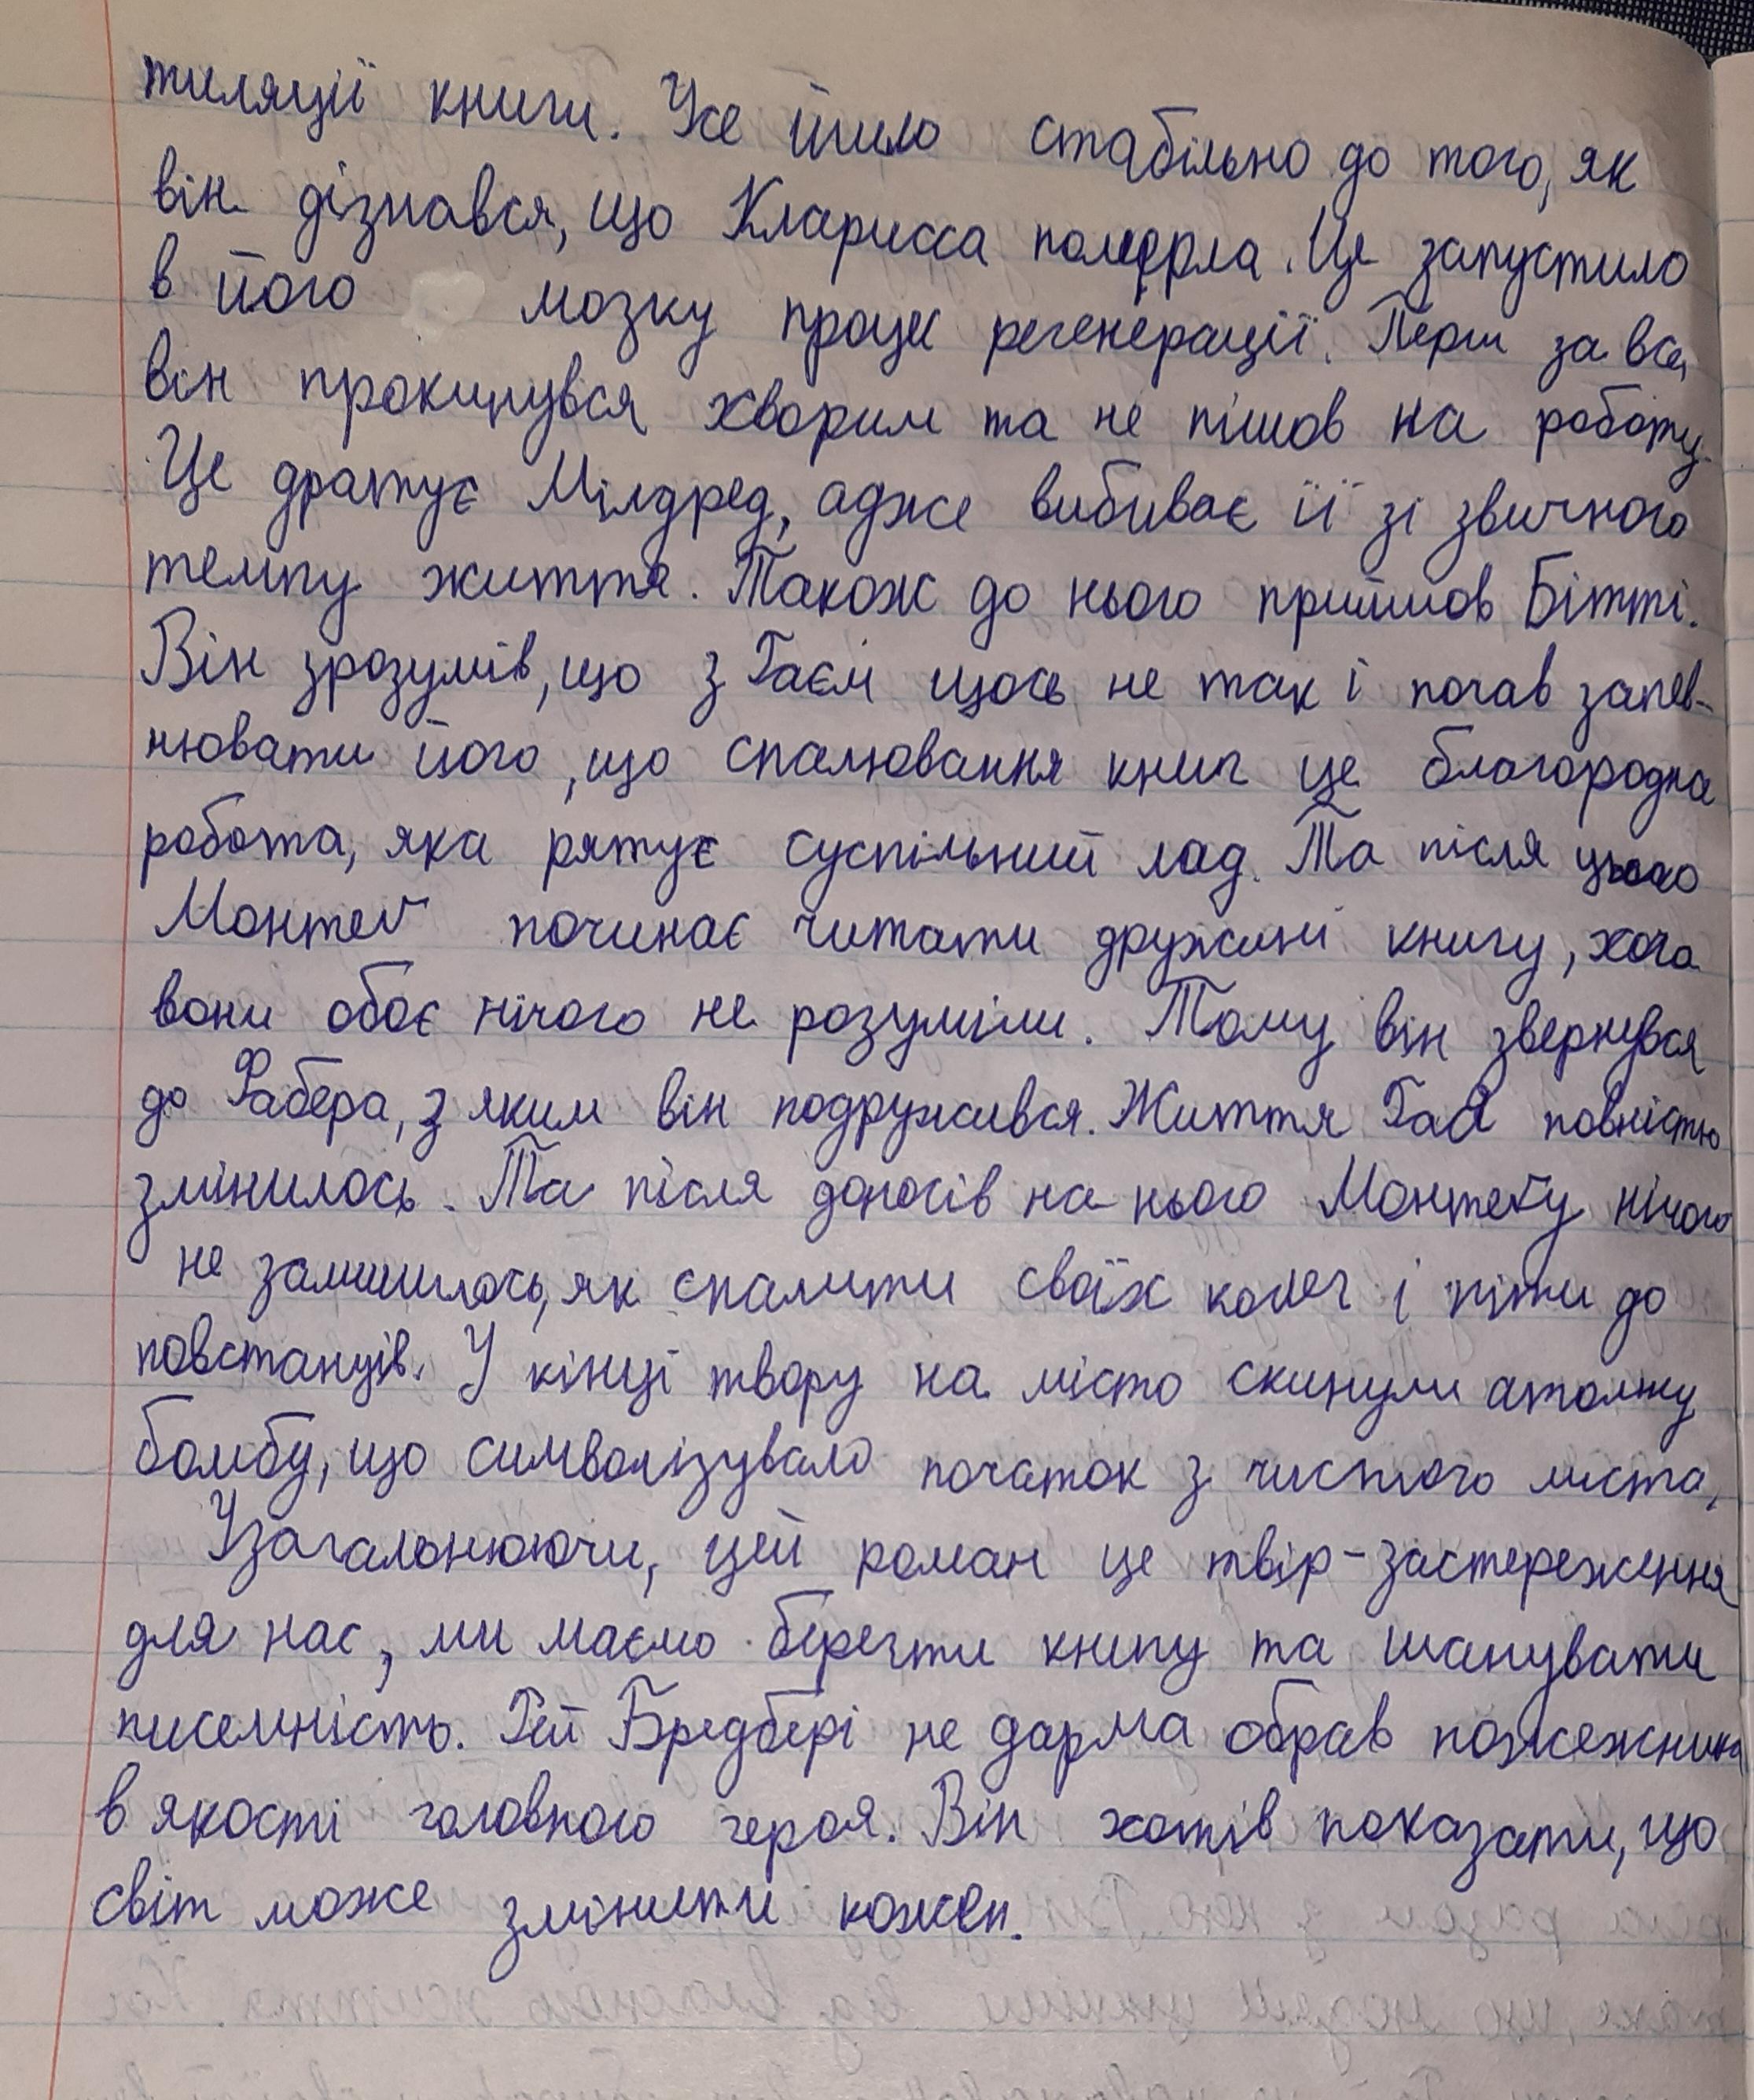 тиляції книги. Усе йшло стабільно до того, як
він дізнався, що Кларисса померла. Це запустило
в його мозку процес регенерації. Перш за все,
він прокинувся хворим та не пішов на роботу.
Це дратує Мілдред, адже вибиває її зі звичного
темпу життя. Також до нього прийшов Бітті.
Він зрозумів, що з Гаєм щось не так і почав запев-
нювати його, що спалювання книг це благородна
робота, яка рятує суспільний лад. Та після цього
Монтеґ починає читати дружині книгу, хоча
вони обоє нічого не розуміли. Тому він звернувся
до Фабера, з яким він подружився. Життя Гая повністю
змінилось. Та після доносів на нього Монтеґу нічого
не залишилось, як спалити своїх колег і піти до
повстанців. У кінці твору на місто скинули атомну
бомбу, що символізувало початок з чистого листа.
Узагальнюючи, цей роман це твір-застереження
для нас, ми маємо берегти книгу та шанувати
писемність. Рей Бредбері не дарма обрав пожежника
в якості головного героя. Він хотів показати, що
світ може змінити кожен.